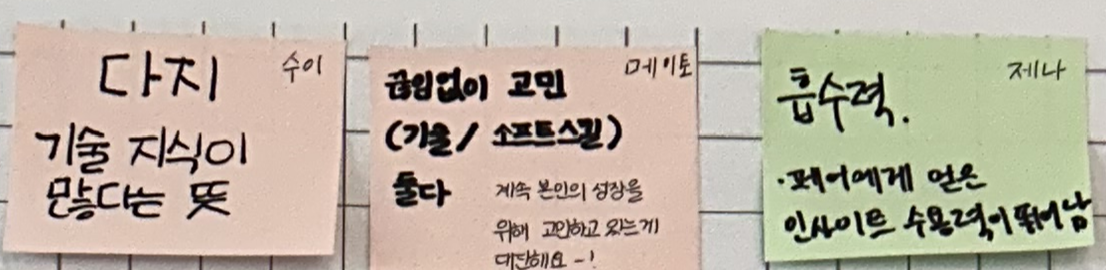 다지
수이
기술 지식이
많다는 뜻
메이토
끊임없이 고민
(기술 / 소프트스킬)
둘다
계속 본인의 성장을
위해 고민하고 있는게
대단해요 -!
제나
흡수력.
·페어에게 얻은
인사이트 수용력이 뛰어남